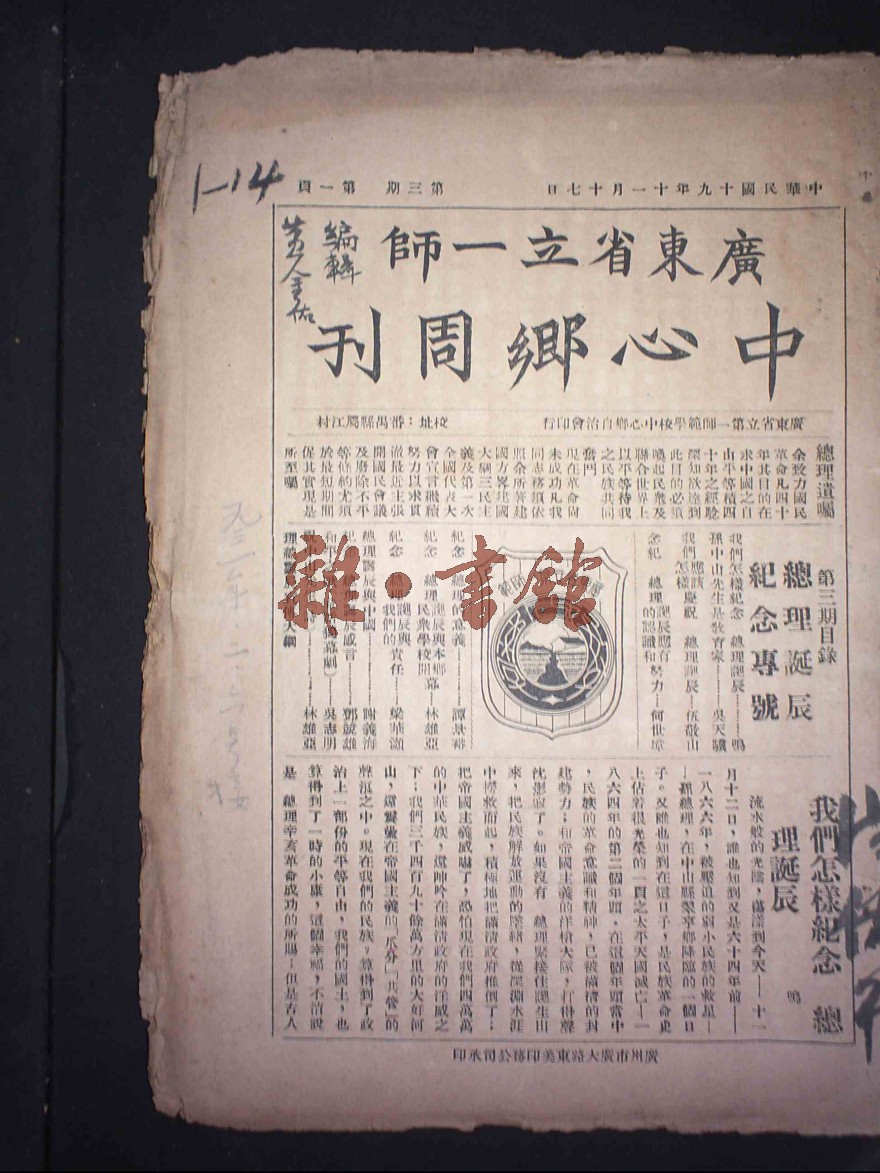 中華民國十九年十一月十七日
第三期
第一頁
1-14
廣東省立一師
中心鄉周刊
編輯
廣東省立第一師範學校中心鄉自治會印行
校址：番禺縣屬江村
總理遺囑
余致力國民
革命凡四十
年其目的在
求中國之自
由平等積四
十年之經驗
深知欲達到
此目的必須
喚起民衆及
聯合世界上
以平等待我
之民族共同
奮鬥
現在革命尚
未成功凡我
同志務須依
照余所著建
國方畧建國
大綱三民主
義及第一次
全國代表大
會宣言繼續
努力以求貫
澈最近主張
開國民會議
及廢除不平
等條約尤須
於最短期間
促其實現是
所至囑
第三期目錄
總理誕辰
紀念專號
我們怎樣紀念　總理誕辰……鳴
孫中山先生是敎育家……吳天驥
我們應該慶祝　總理誕辰……伍敬山
我們怎樣
念紀　總理誕辰應有
的認識和努力…何世璋
紀念　總理的意義……譚景
紀念　總理誕辰與本鄉
民衆學校開幕…林雄亞
紀念　總理誕辰與
我們的責任…梁華灝
總理誕辰與中國……謝義海
誕辰感言……鄧雄
和平
幕劇）…吳志明
林雄亞
理
大綱
雜·書館
我們怎樣紀念　總
理誕辰
鳴
流水般的光陰，蕩漾到今天——十一
月十二日，誰也知到又是六十四年前——
一八六六年，被壓迫的弱小民族的救星—
—孫總理，在中山縣翠亨鄉降臨的一個日
子。又誰也知到在這日子，是民族革命史
上佔着很光榮的一頁之太平天國滅亡——一
八六四年的第二個年頭。在這個年頭當中
，民族的革命意識和精神，已被滿清的封
建勢力；和帝國主義的洋槍大隊，打得聲
沈影寂了。如果沒有　總理緊接住誕生出
來，把民族解放運動的墜緒，從深淵水涯
中撈救而起，積極地把滿清政府推倒了；
把帝國主義威嚇了，恐怕現在我們四萬萬
的中華民族，還呻吟在滿清政府的洋威之
下；我們三千四百九十餘萬方里的大好河
山，還震盪在帝國主義的「瓜分」「共管」的
聲浪之中。現在我們的民族，算得到了政
治上一部份的平等自由，我們的國土，也
算得到了一時的小康，這個幸福，不消說
是　總理辛亥革命成功的所賜；但是古人
廣州市廣大路東美印務公司承印